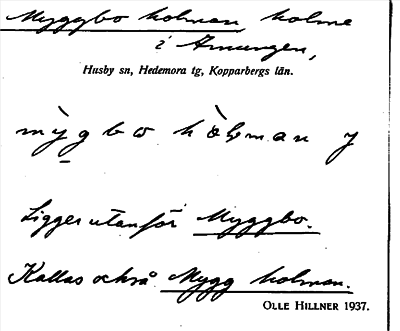 Myggbo holman, holme
i Amungen,
Husby sn, Hedemora tg, Kopparbergs län.
mỳgbo hòlman
Ligger utanför Myggbo.
Kallas också Mygg holman.
OLLE HILLNER 1937.